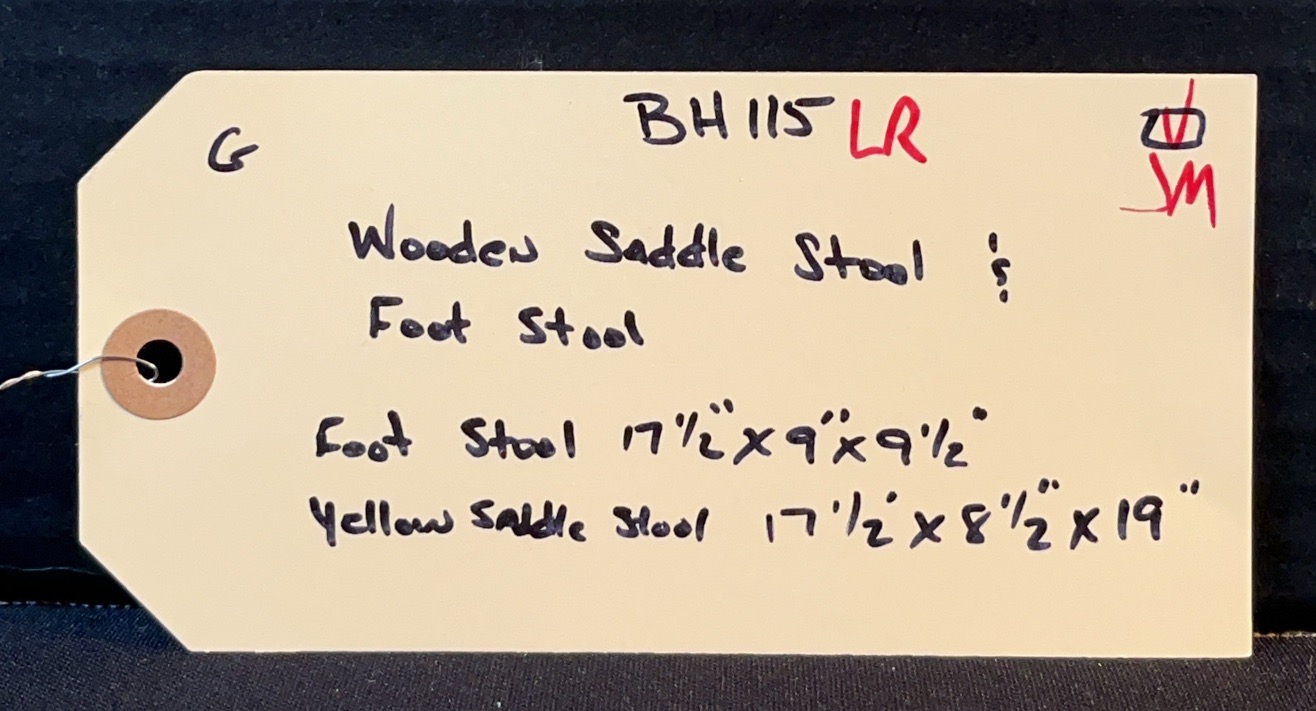 G
BH115 LR
SM
Wooden Saddle Stool &
Foot Stool
Foot Stool 17 1/2" x 9" x 9 1/2"
Yellow Saddle Stool 17 1/2" x 8 1/2" x 19"